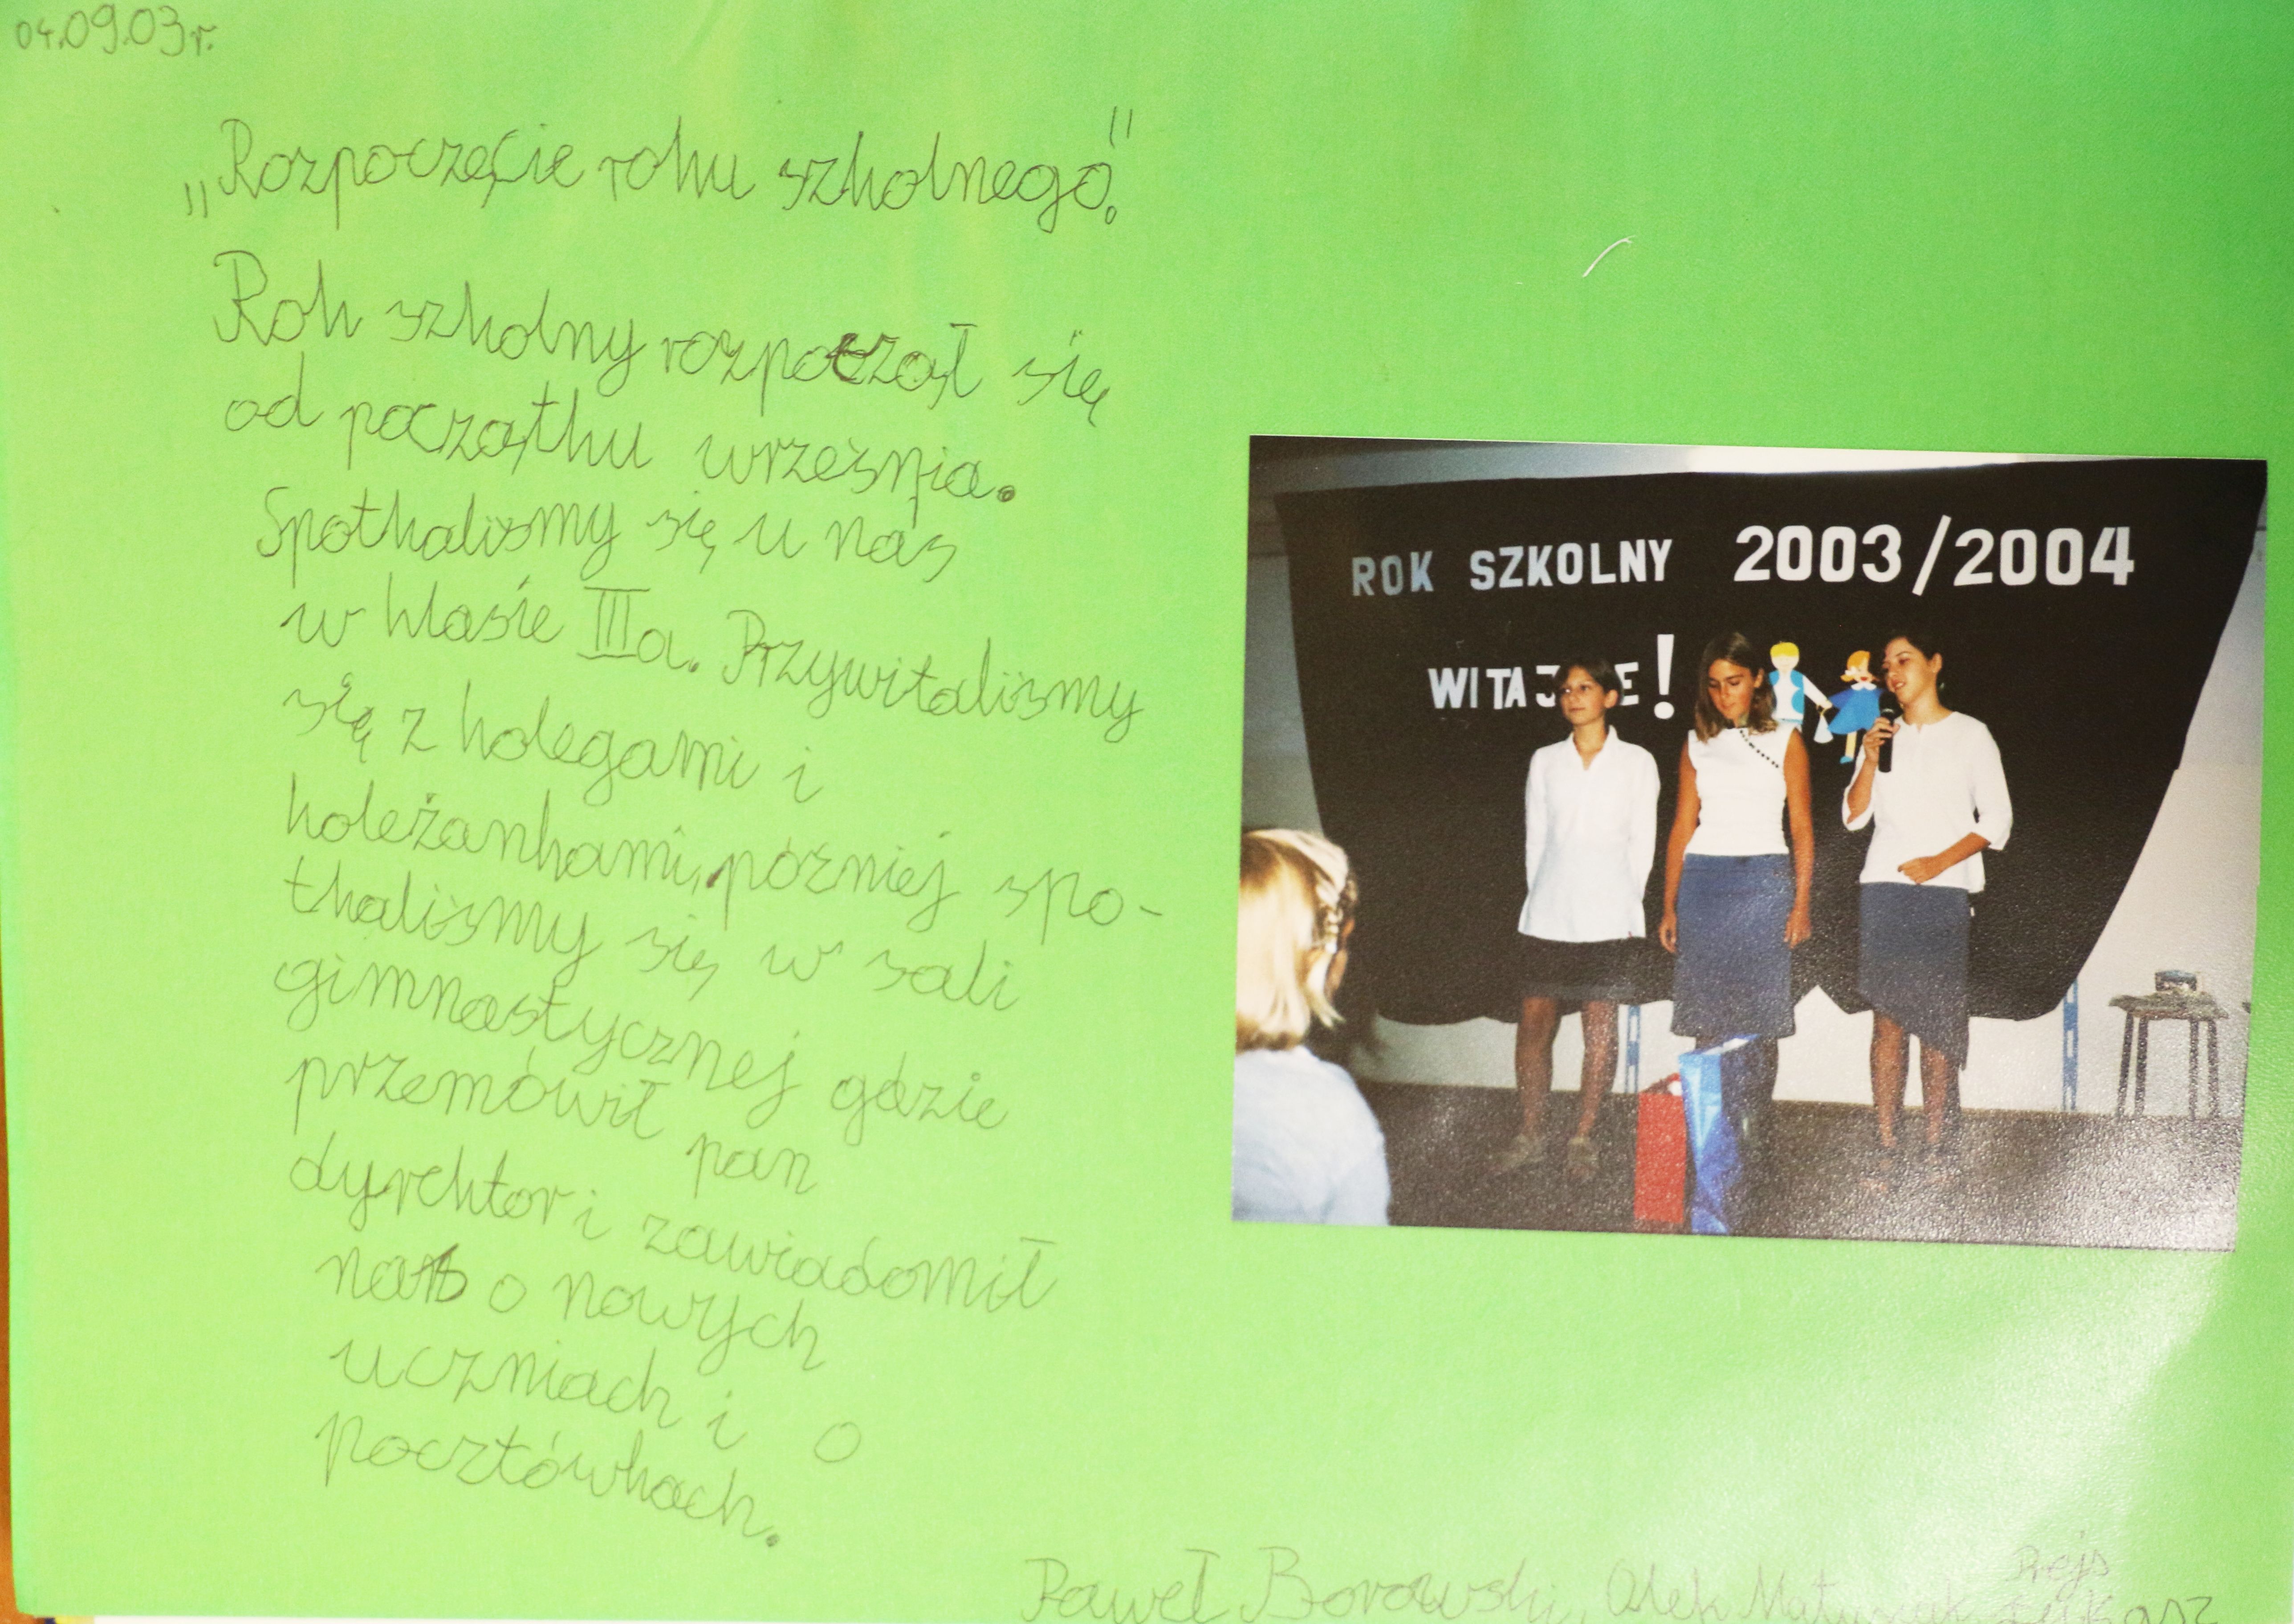 04.09.03r.
„Rozpoczęcie roku szkolnego."
Rok szkolny rozpoczął się
od początku września.
Spotkaliśmy się u nas
w klasie IIIa. Przywitaliśmy
się z kolegami i
koleżankami, później spo-
tkaliśmy się w sali
gimnastycznej gdzie
przemówił pan
dyrektor i zawiadomił
nas o nowych
uczniach i o
pocztówkach.
ROK SZKOLNY 2003/2004
WITAJ E!
Rejs
Paweł Borowski, Olek Łukasz